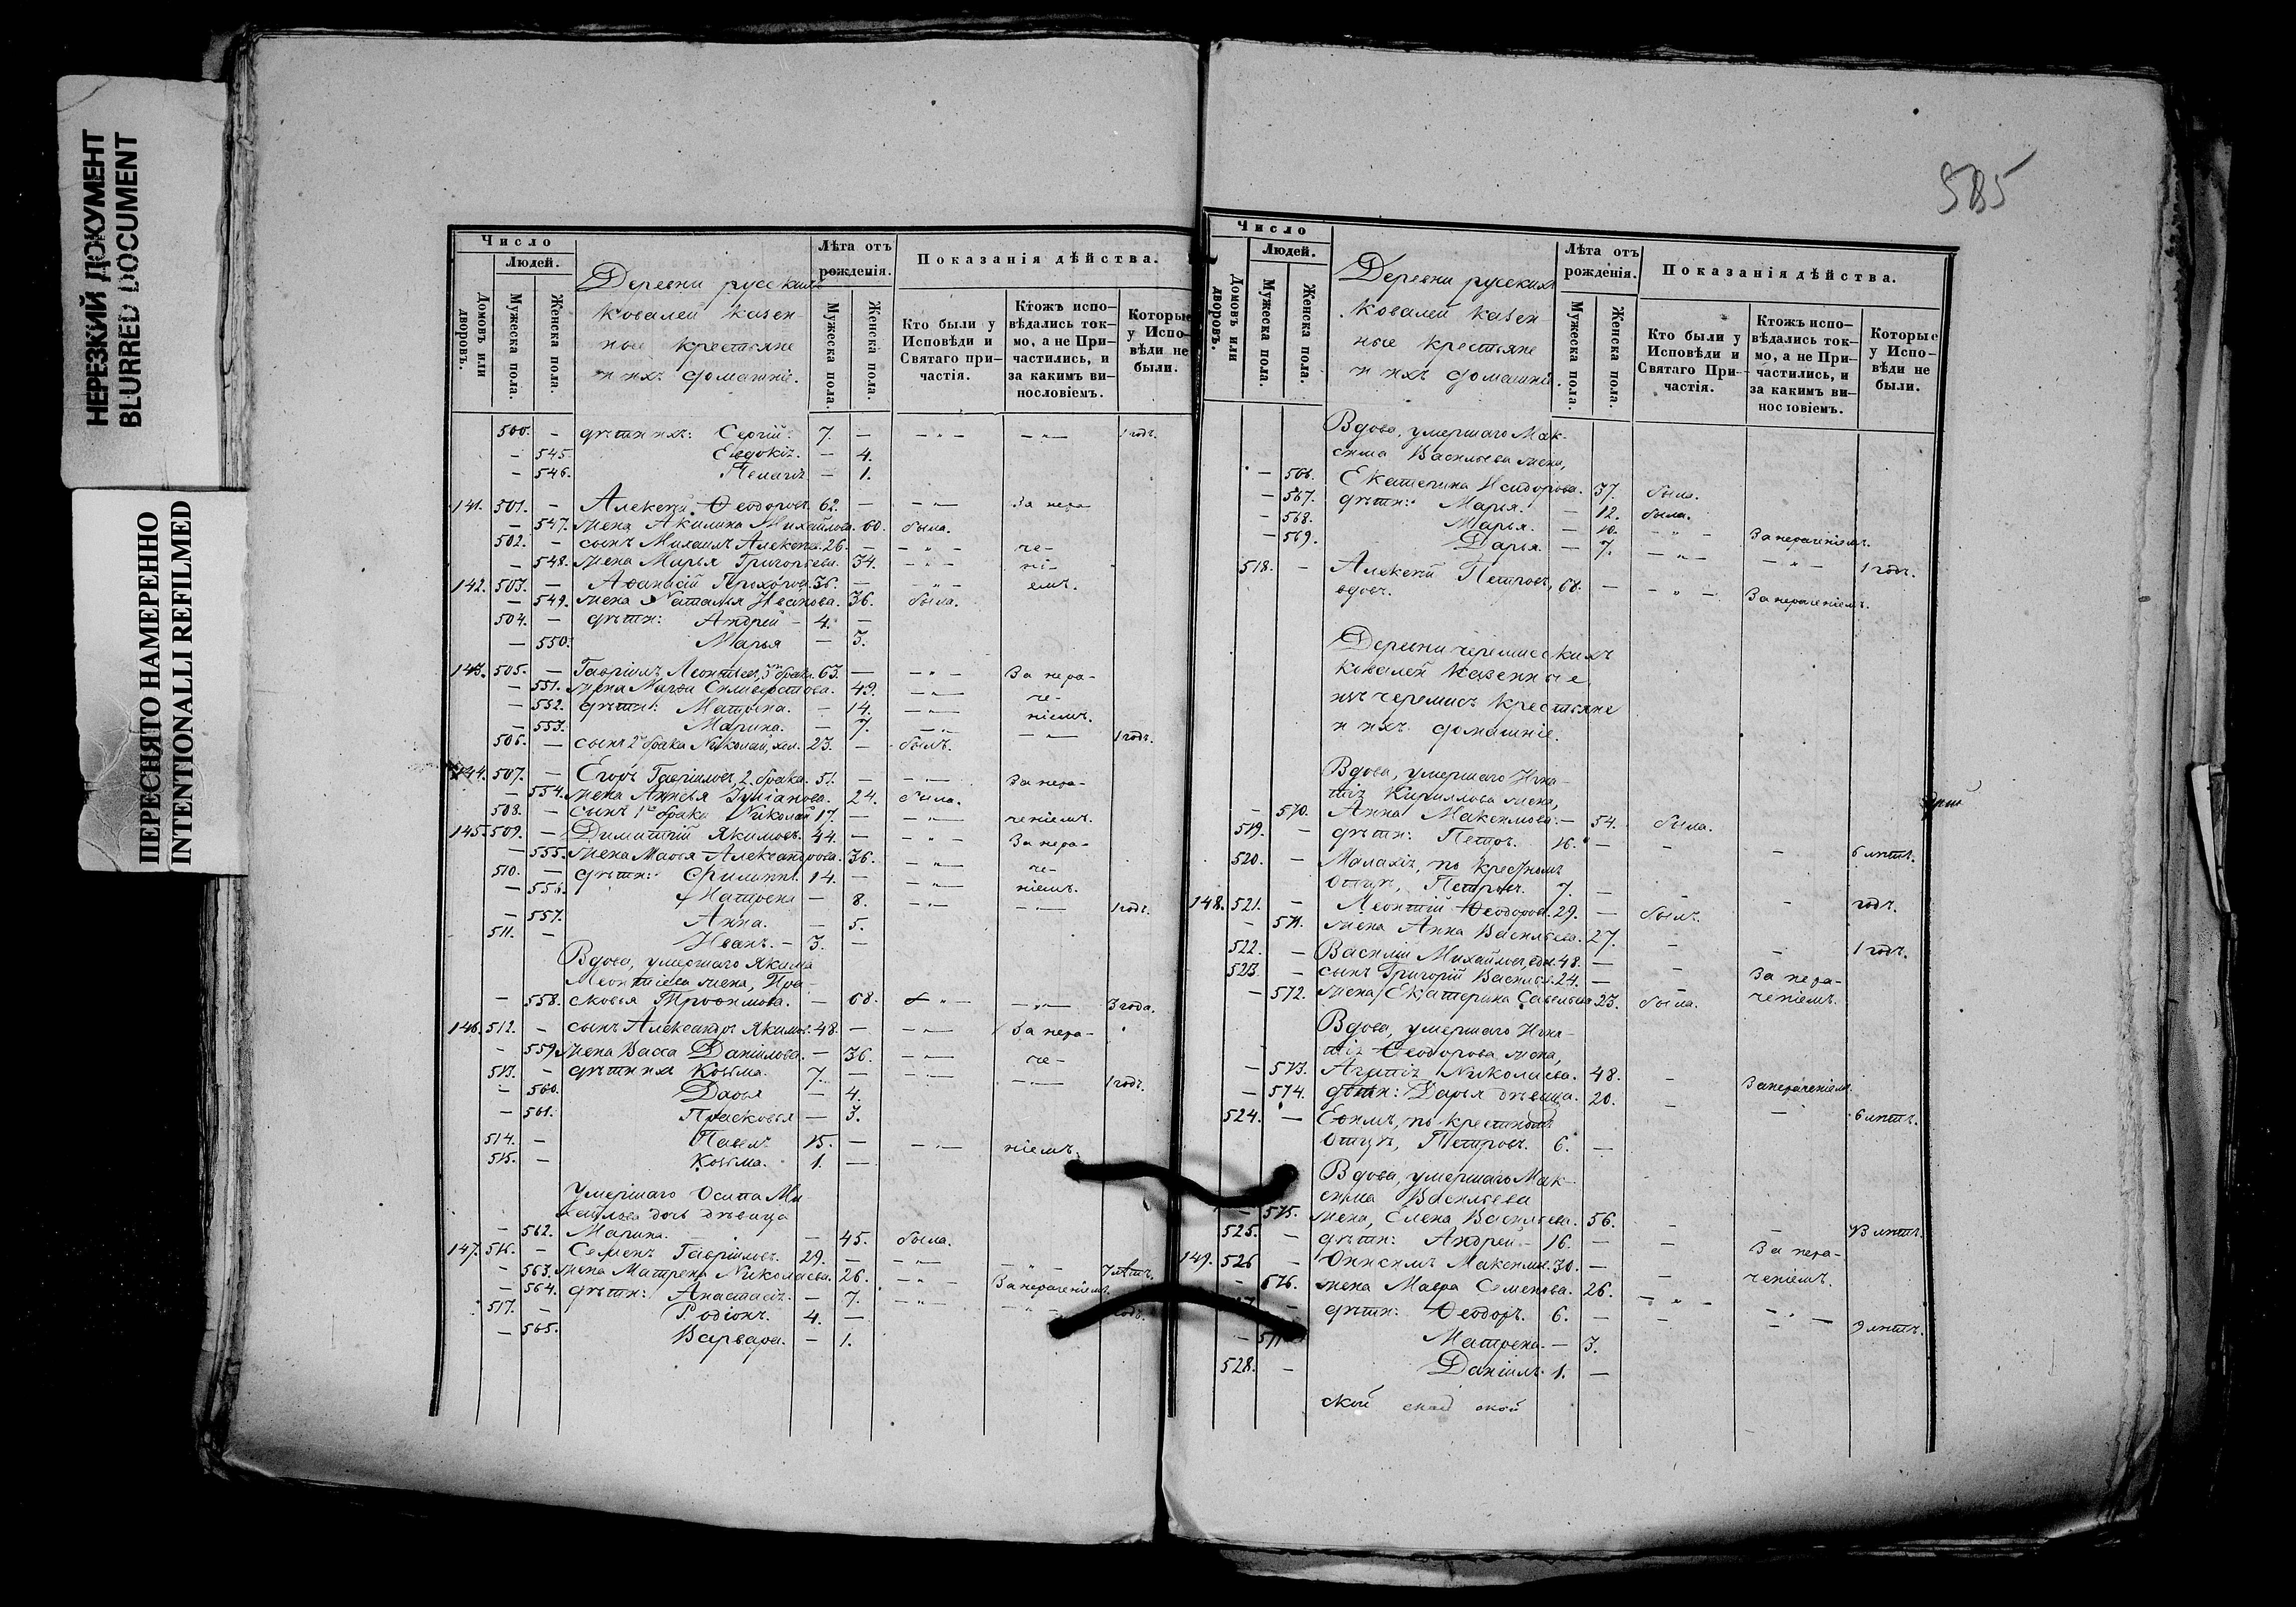 НЕРЕЗКИЙ ДОКУМЕНТ
BLURRED DOCUMENT
ПЕРЕСНЯТО НАМЕРЕННО
INTENTIONALLI REFILMED
Число
Людей.
Домовъ или дворовъ.
Мужеска пола.
Женска пола.
Деревни русскихъ
Ковалей казен-
ные крестьяне
и ихъ домашніе.
Лѣта отъ рожденія.
Мужеска пола.
Женска пола.
Показанія дѣйства.
Кто были у Исповѣди и Святаго при-частія.
Ктожъ испо-вѣдались ток-мо, а не При-частились, и за какимъ ви-нословіемъ.
Которые у Испо-вѣди не были.
500. — дѣти ихъ: Сергій. 7. — —„— —„— 1 годъ.
— 545. Евдокія. — 4.
— 546. Пелагія — 1.
141. 501. — Алексѣй Ѳеодоровъ. 62. — —„— За нера-
— 547. жена Акилина Михайлова. 60. была.
502. — сынъ Михаилъ Алексѣевъ. 26. — —„— че-
— 548. жена Марья Григорьева. 34. —„— ні-
142. 503. — Аѳанасій Прохоровъ. 36. — —„— емъ.
— 549. жена Наталья Иванова. 36. была.
504. — дѣти: Андрей — 4. —
— 550. Марья — 3.
143. 505. — Гавріилъ Леонтьевъ, 3го брака. 63. — —„— За нера-
— 551. жена Марѳа Сильверстова. 49. —„— че-
— 552. дѣти: Матрена. — 14. —„— ніемъ.
— 553. Марина. — 7. —„—
506. — сынъ 2го брака Николай, хол. 23. — былъ. —„— 1 годъ.
144. 507. — Егоръ Гавріиловъ, 2. брака. 51. — —„— За нера-
— 554. жена Анисья Іуліанова. 24. была.
508. — сынъ 1го брака Николай 17. — —„— ченіемъ.
145. 509. — Димитрій Якимовъ. 44. — —„— За нера-
— 555. жена Марья Александрова. 36. —„— че-
510. — дѣти: Филиппъ. 14. — —„— ніемъ.
— 556. Матрена — 8. —„— —„— 1 годъ.
— 557. Анна. — 5.
511. — Иванъ. — 3. —
Вдова, умершаго Якима
Леонтіева жена, Пра-
— 558. сковья Трофимова. — 68. —„— —„— 3 года.
146. 512. — сынъ Александръ Якимовъ. 48. — —„— За нера-
— 559. жена Васса Даніилова. — 36. —„— че-
513. — дѣти ихъ Козьма. 7. — —„— —„— 1 годъ.
— 560. Дарья — 4.
— 561. Прасковья — 3.
514. — Павелъ 15. — —„— ніемъ.
515. — Козьма. 1. —
Умершаго Осипа Ми
хайлова дочь дѣвица
— 562. Марина. — 45. была.
147. 516. — Семенъ Гавріиловъ. 29. — —„— —„— 7 лѣтъ.
— 563. жена Матрена Николаева. 26. —„— За нераченіемъ.
— 564. дѣти: Анастасія. — 7. —„— —„— годъ.
517. — Родіонъ. 4. —
— 565. Варвара. — 1.
585
Число
Людей.
Домовъ или дворовъ.
Мужеска пола.
Женска пола.
Деревни русскихъ
Ковалей казен-
ные крестьяне
и ихъ домашніе.
Лѣта отъ рожденія.
Мужеска пола.
Женска пола.
Показанія дѣйства.
Кто были у Исповѣди и Святаго При-частія.
Ктожъ испо-вѣдались ток-мо, а не При-частились, и за какимъ ви-нословіемъ.
Которые у Испо-вѣди не были.
Вдова, умершаго Мак-
сима Васильева жена,
— 566. Екатерина Исидорова. 37. была.
— 567. дѣти: Марья. — 12. была.
— 568. Марья. — 10. —„— За нераченіемъ.
— 569. Дарья — 7. —„— —„— 1 годъ.
518. — Алексѣй Петровъ, 68. — —„— За нераченіемъ.
вдовъ.
Деревни черемисскихъ
Ковалей казенные
изъ черемисъ крестьяне
и ихъ домашніе.
Вдова, умершаго Игна-
тія Кирилова жена,
— 570. Анна Максимова. — 54. была.
519. — дѣти: Петръ. 16. — — — 6 лѣтъ.
520. — Малахія, по крестномъ
отцу, Петровъ. 7. — — — годъ.
148. 521. — Леонтій Ѳеодоровъ. 29. — былъ.
— 571. жена Анна Васильева. 27. — — 1 годъ.
522. — Василій Михайловъ, вдов. 48. — — За нера-
523. — сынъ Григорій Васильевъ. 24. — — ченіемъ.
— 572. жена Екатерина Савельева 23. была.
Вдова, умершаго Игна-
тія Ѳеодорова жена,
— 573. Агапія Николаева. 48. — За нераченіемъ.
— 574. дѣти: Дарья дѣвица. 20. — — 6 лѣтъ.
524. — Ефимъ, по крестномъ
отцу, Петровъ. 6. —
Вдова, умершаго Мак-
сима Васильева
— 575. жена, Елена Васильева. 56. — — 13 лѣтъ.
525. — дѣти: Андрей — 16. — — За нера-
149. 526 — Онисимъ Максимовъ. 30. — — ченіемъ.
— 576. жена Мавра Семенова. 26. —„— —„—
— дѣти: Ѳеодоръ. 6. — — — 9 лѣтъ.
— Матрена. — 3.
528. — Даніилъ. 1. —
ской ской ской